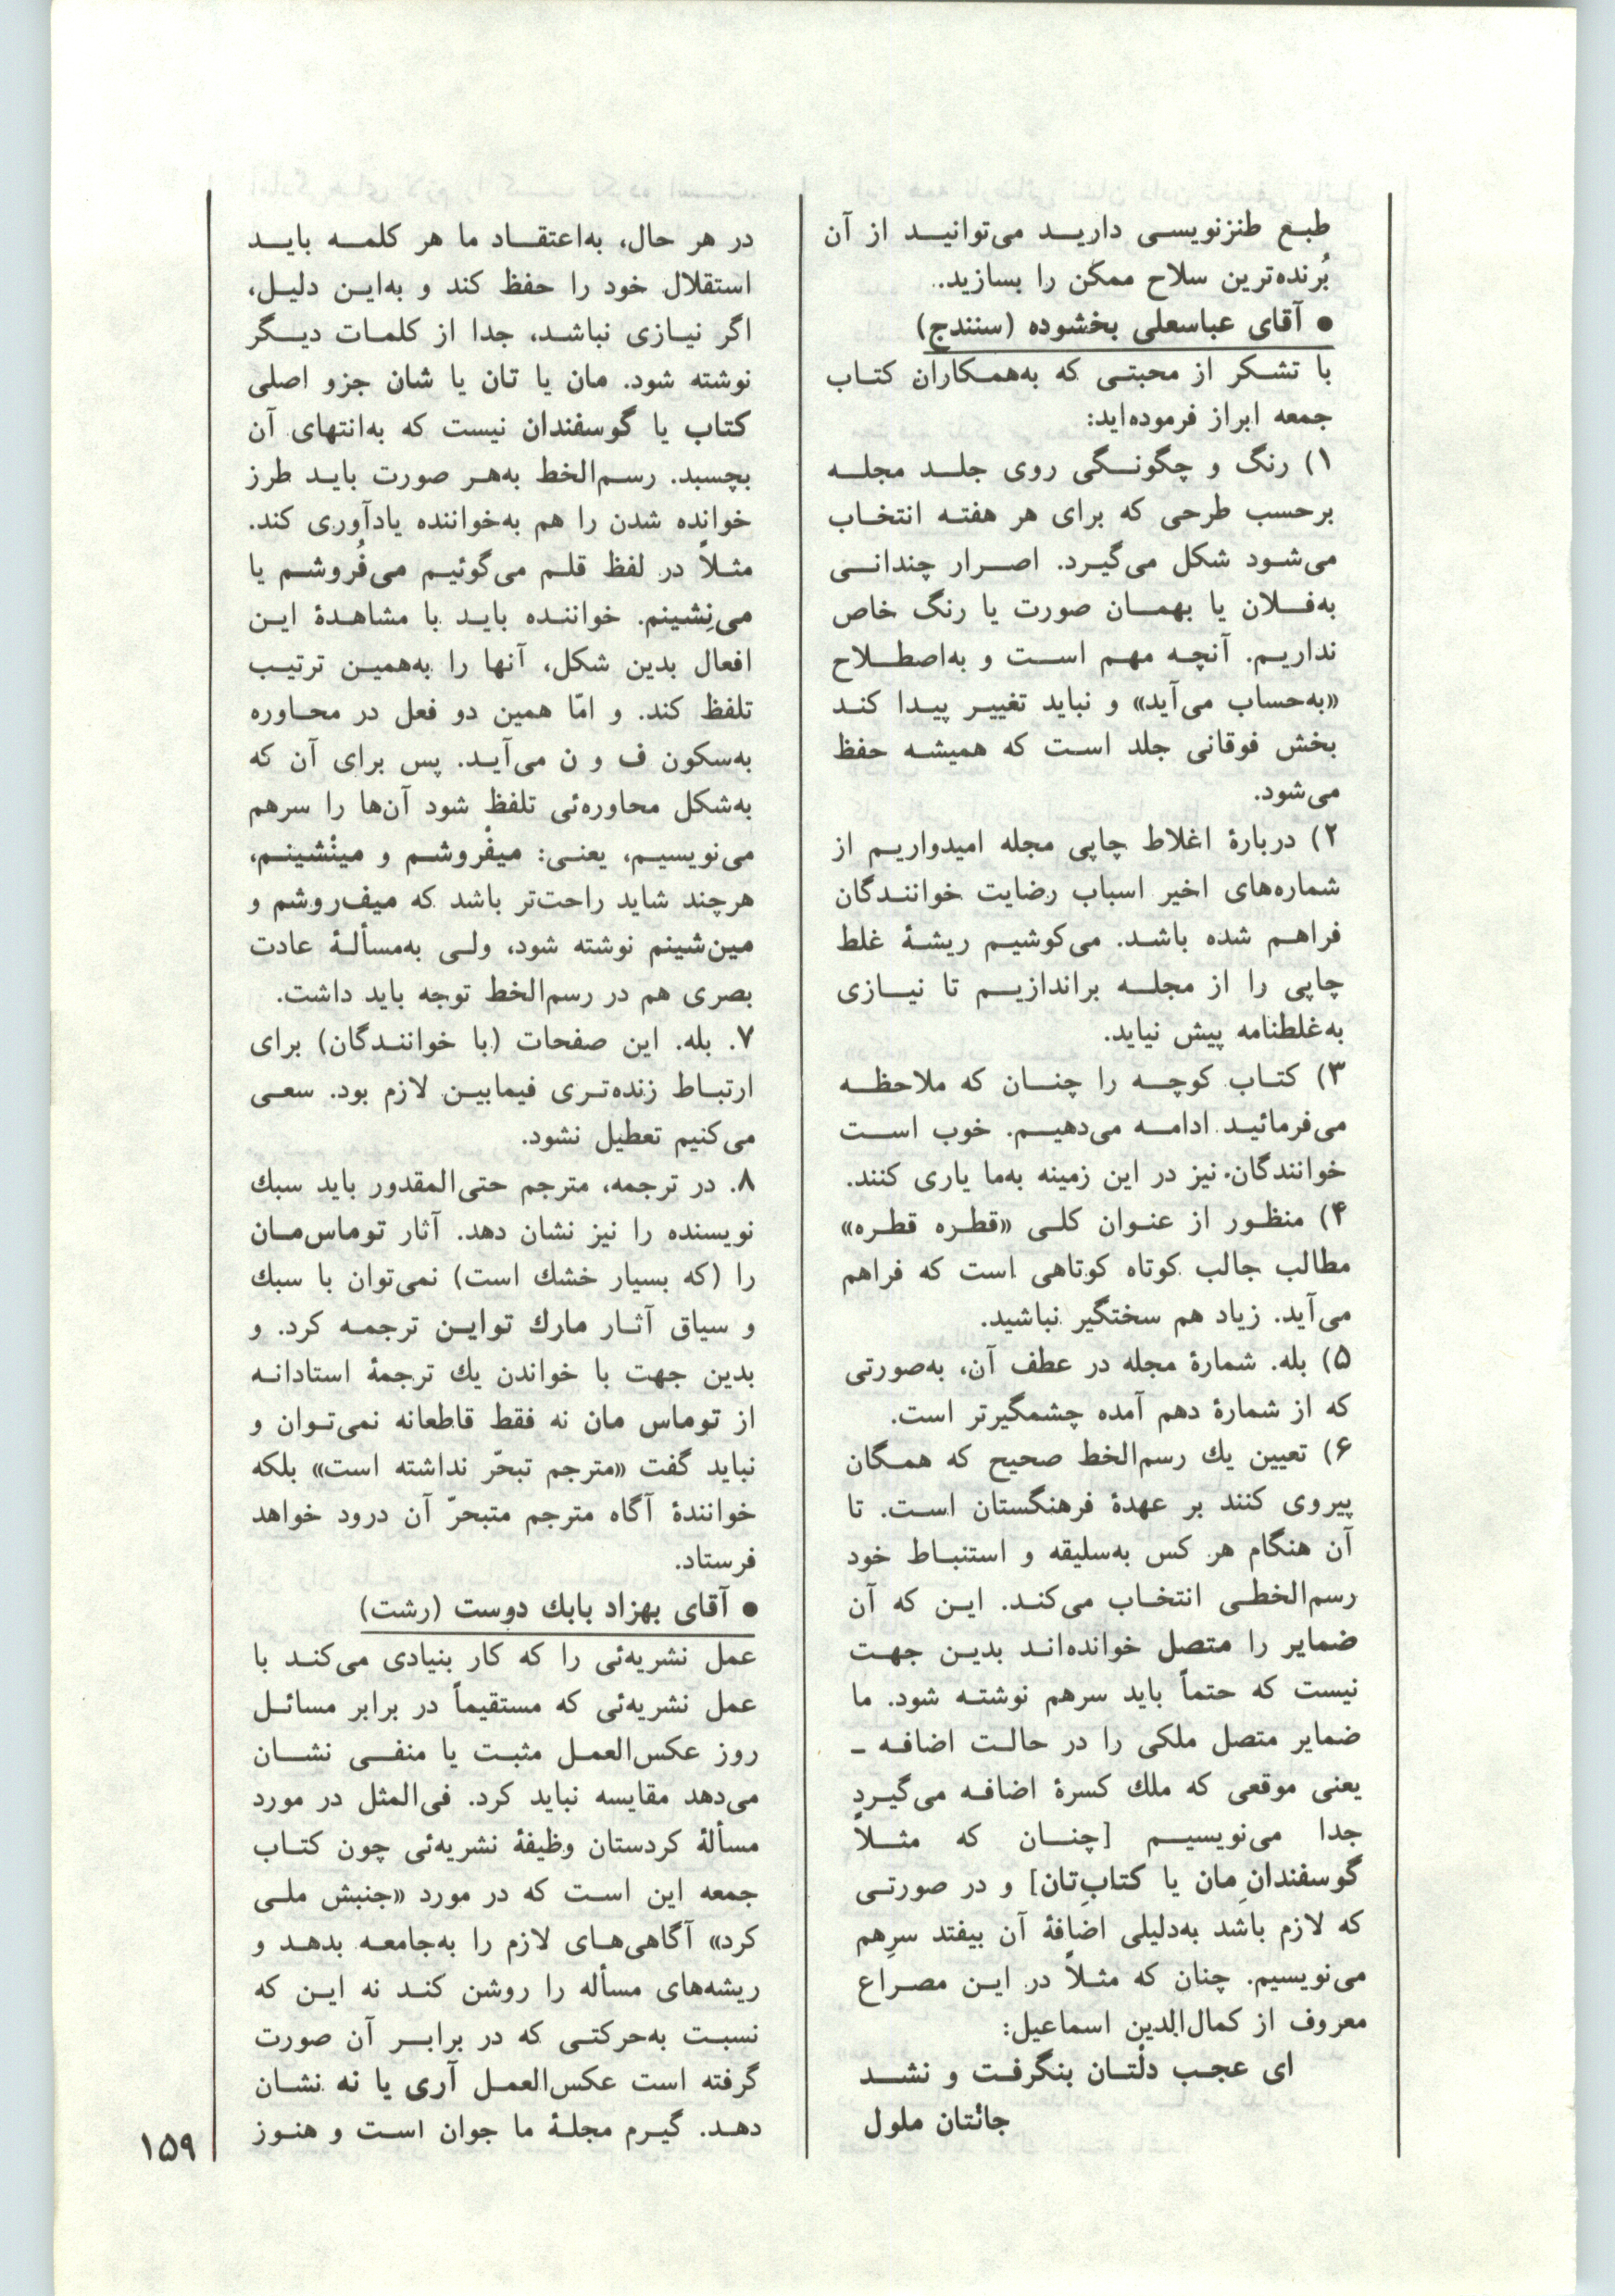 طبع طنزنویسی دارید می‌توانید از آن
بُرنده‌ترین سلاح ممکن را بسازید.
● آقای عباسعلی بخشوده (سنندج)
با تشکر از محبتی که به‌همکاران کتاب
جمعه ابراز فرموده‌اید:
۱) رنگ و چگونگی روی جلد مجله
برحسب طرحی که برای هر هفته انتخاب
می‌شود شکل می‌گیرد. اصرار چندانی
به‌فلان یا بهمان صورت یا رنگ خاص
نداریم. آنچه مهم است و به‌اصطلاح
«به‌حساب می‌آید» و نباید تغییر پیدا کند
بخش فوقانی جلد است که همیشه حفظ
می‌شود.
۲) دربارهٔ اغلاط چاپی مجله امیدواریم از
شماره‌های اخیر اسباب رضایت خوانندگان
فراهم شده باشد. می‌کوشیم ریشهٔ غلط
چاپی را از مجله براندازیم تا نیازی
به‌غلطنامه پیش نیاید.
۳) کتاب کوچه را چنان که ملاحظه
می‌فرمائید ادامه می‌دهیم. خوب است
خوانندگان نیز در این زمینه به‌ما یاری کنند.
۴) منظور از عنوان کلی «قطره قطره»
مطالب جالب کوتاه کوتاهی است که فراهم
می‌آید. زیاد هم سختگیر نباشید.
۵) بله. شمارهٔ مجله در عطف آن، به‌صورتی
که از شمارهٔ دهم آمده چشمگیرتر است.
۶) تعیین یك رسم‌الخط صحیح که همگان
پیروی کنند بر عهدهٔ فرهنگستان است. تا
آن هنگام هر کس به‌سلیقه و استنباط خود
رسم‌الخطی انتخاب می‌کند. این که آن
ضمایر را متصل خوانده‌اند بدین جهت
نیست که حتماً باید سرهم نوشته شود. ما
ضمایر متصل ملکی را در حالت اضافه ـ
یعنی موقعی که ملك کسرهٔ اضافه می‌گیرد
جدا می‌نویسیم [چنان که مثلاً
گوسفندانِ‌مان یا کتابِ‌تان] و در صورتی
که لازم باشد به‌دلیلی اضافهٔ آن بیفتد سرِهم
می‌نویسیم. چنان که مثلاً در این مصراع
معروف از کمال‌الدین اسماعیل:
ای عجب دلْتان بنگرفت و نشد
جانْتان ملول
در هر حال، به‌اعتقاد ما هر کلمه باید
استقلال خود را حفظ کند و به‌این دلیل،
اگر نیازی نباشد، جدا از کلمات دیگر
نوشته شود. مان یا تان یا شان جزو اصلی
کتاب یا گوسفندان نیست که به‌انتهای آن
بچسبد. رسم‌الخط به‌هر صورت باید طرز
خوانده شدن را هم به‌خواننده یادآوری کند.
مثلاً در لفظ قلم می‌گوئیم می‌فُروشم یا
می‌نِشینم. خواننده باید با مشاهدهٔ این
افعال بدین شکل، آنها را به‌همین ترتیب
تلفظ کند. و امّا همین دو فعل در محاوره
به‌سکون ف و ن می‌آید. پس برای آن که
به‌شکل محاوره‌ئی تلفظ شود آن‌ها را سرهم
می‌نویسیم، یعنی: میفْروشم و مینْشینم،
هرچند شاید راحت‌تر باشد که میف‌روشم و
مین‌شینم نوشته شود، ولی به‌مسألهٔ عادت
بصری هم در رسم‌الخط توجه باید داشت.
۷. بله. این صفحات (با خوانندگان) برای
ارتباط زنده‌تری فیمابین لازم بود. سعی
می‌کنیم تعطیل نشود.
۸. در ترجمه، مترجم حتی‌المقدور باید سبك
نویسنده را نیز نشان دهد. آثار توماس‌مان
را (که بسیار خشك است) نمی‌توان با سبك
و سیاق آثار مارك تواین ترجمه کرد. و
بدین جهت با خواندن یك ترجمهٔ استادانه
از توماس مان نه فقط قاطعانه نمی‌توان و
نباید گفت «مترجم تبحّر نداشته است» بلکه
خوانندهٔ آگاه مترجم متبحرّ آن درود خواهد
فرستاد.
● آقای بهزاد بابك دوست (رشت)
عمل نشریه‌ئی را که کار بنیادی می‌کند با
عمل نشریه‌ئی که مستقیماً در برابر مسائل
روز عکس‌العمل مثبت یا منفی نشان
می‌دهد مقایسه نباید کرد. فی‌المثل در مورد
مسألهٔ کردستان وظیفهٔ نشریه‌ئی چون کتاب
جمعه این است که در مورد «جنبش ملی
کرد» آگاهی‌های لازم را به‌جامعه بدهد و
ریشه‌های مسأله را روشن کند نه این که
نسبت به‌حرکتی که در برابر آن صورت
گرفته است عکس‌العمل آری یا نه نشان
دهد. گیرم مجلهٔ ما جوان است و هنوز
۱۵۹